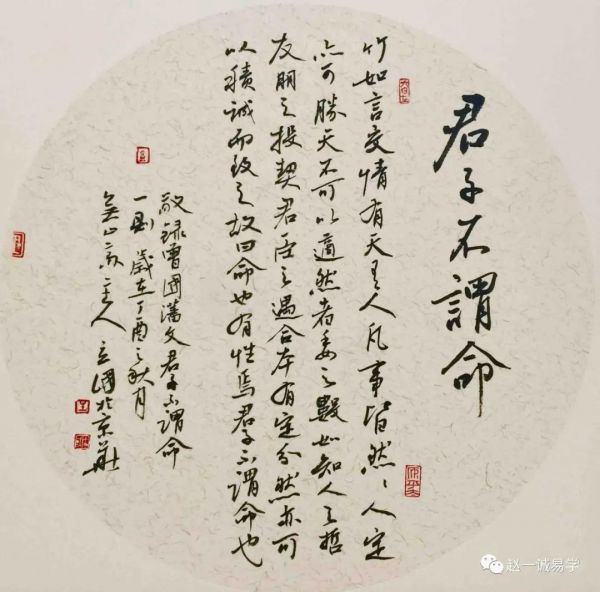 君子不謂命
竹如言交情有天有人凡事皆然、人定
亦可勝天不可以適然者委之數如知人之哲
友朋之投契君臣之遇合本有定分然亦可
以積誠而致之故曰命也有性焉君子不謂命也
敬録曾國藩文君子不謂命
一則 歲在丁酉之秋月
主人 立國於京華
赵一诚易学